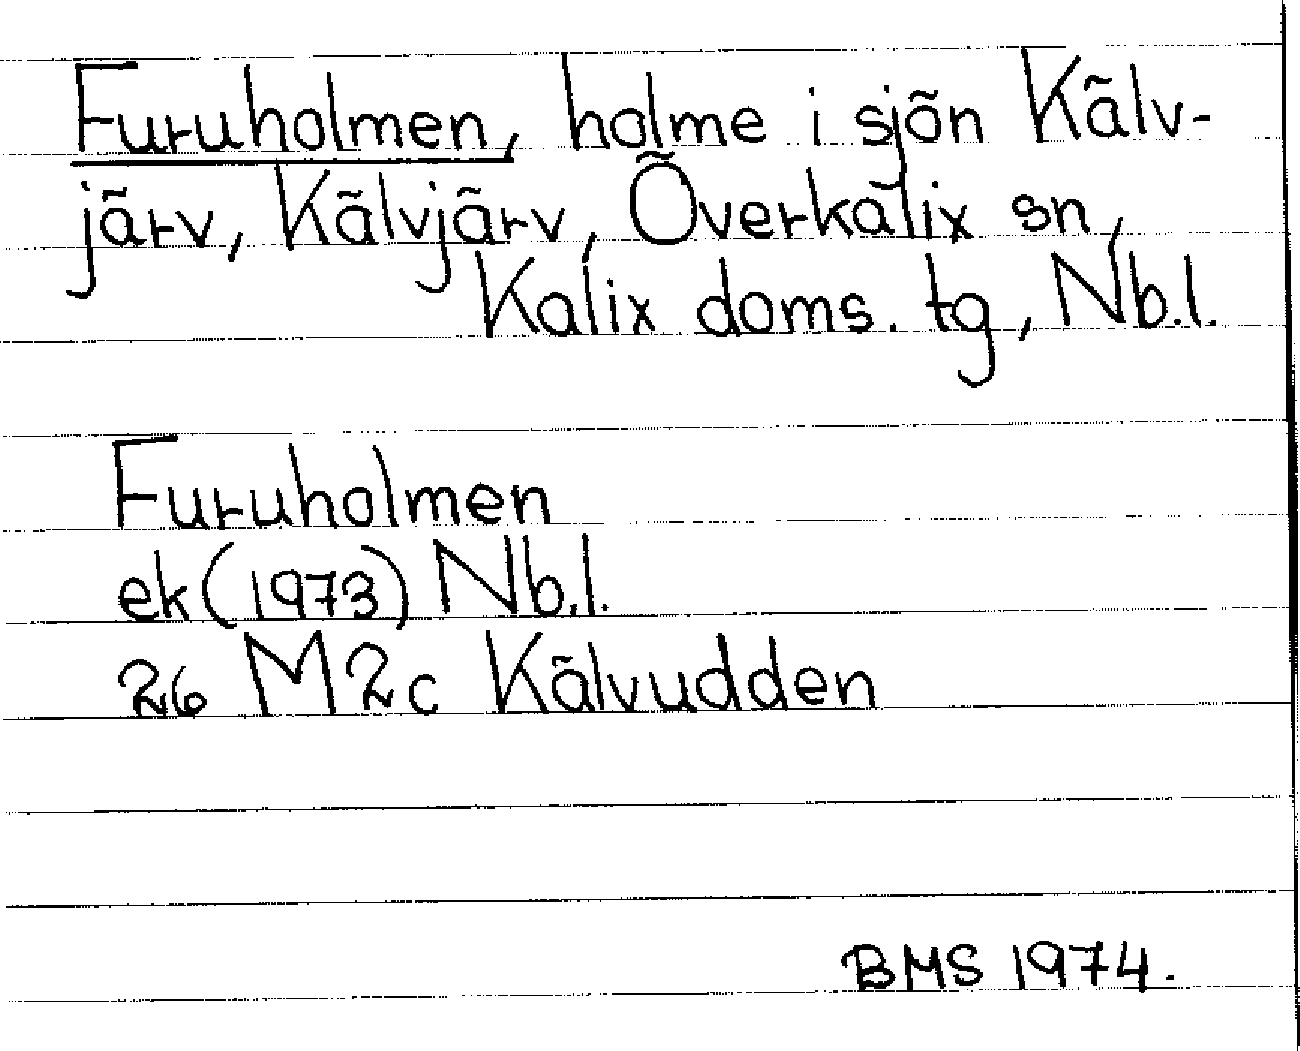 Furuholmen, holme i sjön Kälv-
järv, Kälvjärv, Överkalix sn,
Kalix doms. tg, Nb.l.
Furuholmen
ek (1973) Nb.l.
26 M 2c Kälvudden
BMS 1974.